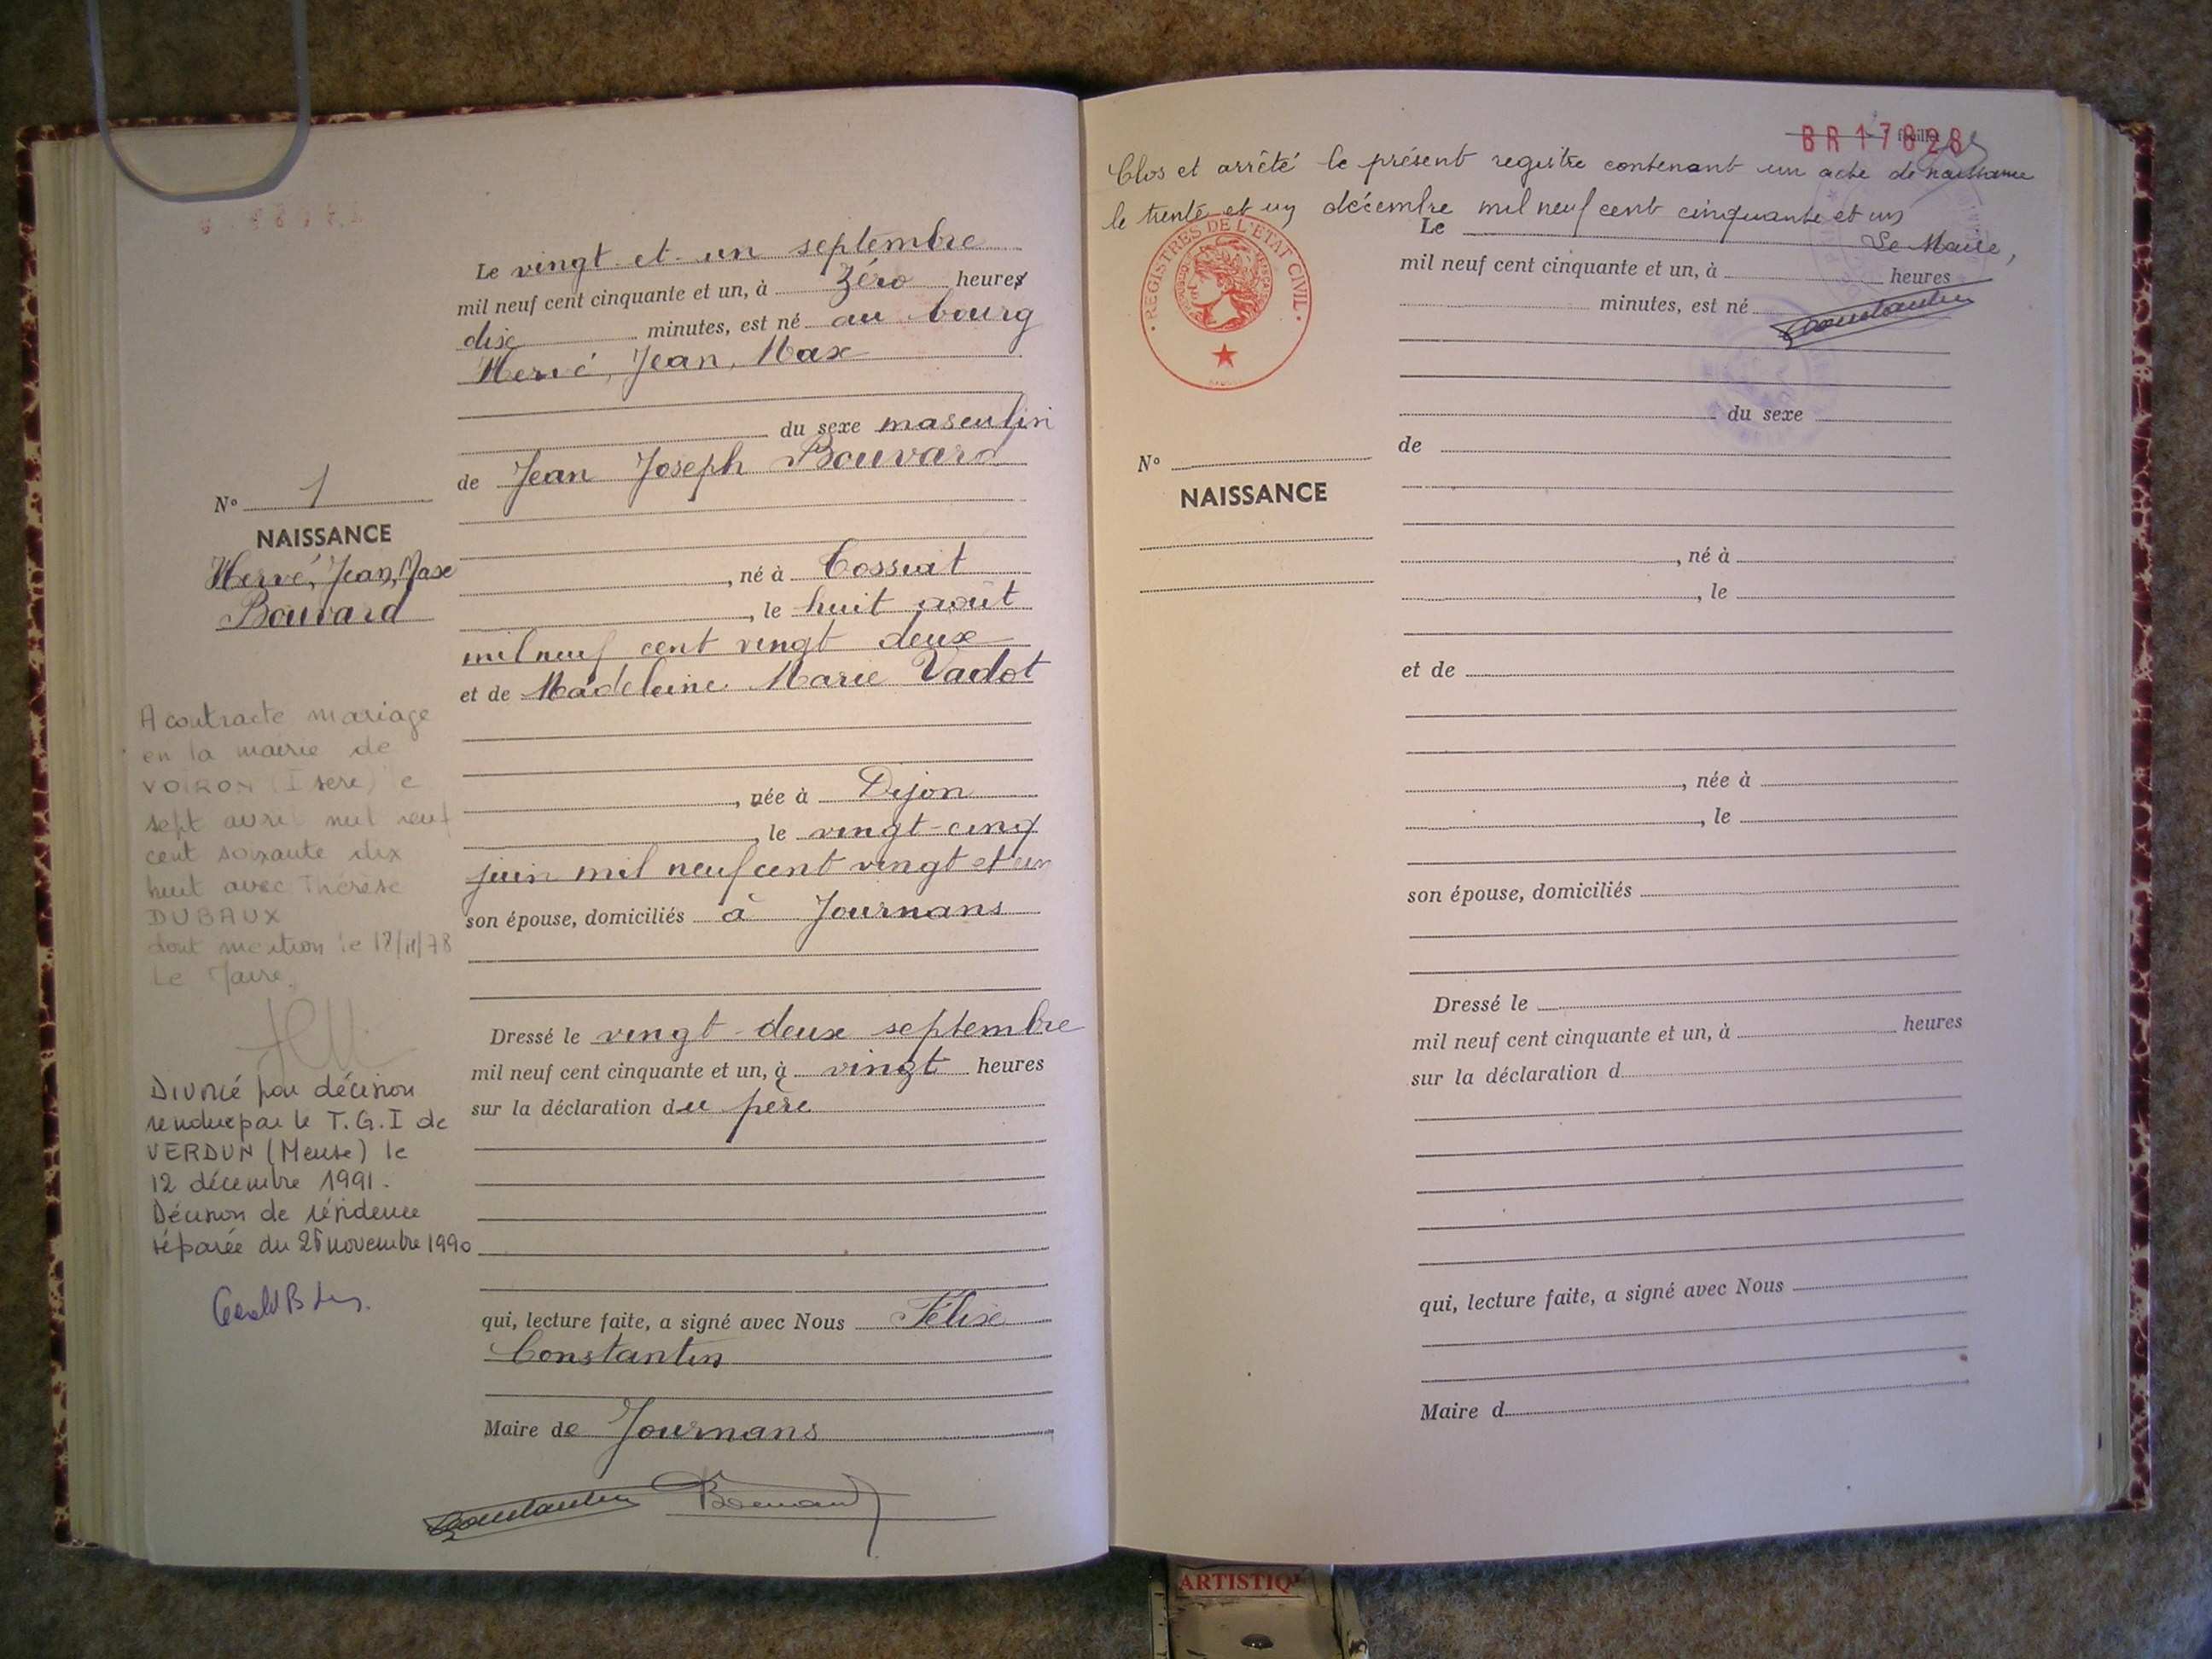 Le vingt-et-un septembre
mil neuf cent cinquante et un, à zéro heures
dix minutes, est né au bourg
Hervé, Jean, Max
du sexe masculin
de Jean Joseph Bouvard
N° 1
NAISSANCE
Hervé, Jean, Max
Bouvard
, né à Cossiat
, le huit août
mil neuf cent vingt deux
et de Madeleine Marie Vadot
, née à Dijon
, le vingt-cinq
juin mil neuf cent vingt et un
son épouse, domiciliés à Journans
Dressé le vingt-deux septembre
mil neuf cent cinquante et un, à vingt heures
sur la déclaration du père
qui, lecture faite, a signé avec Nous Félix
Constantin
Maire de Journans
Constantin Bouvard
A contracté mariage
en la mairie de
VOIRON (Isère) le
sept avril mil neuf
cent soixante dix
huit avec Thérèse
DUBAUX
dont mention le
Le Maire,
Divorcé par décision
rendue par le T.G.I de
VERDUN (Meuse) le
12 décembre 1991.
Décision de résidence
séparée du novembre 1990
BR 17828
feuillet
Clos et arrêté le présent registre contenant un acte de naissance
le trente et un décembre mil neuf cent cinquante et un
Le Maire,
Constantin
REGISTRES DE L'ÉTAT CIVIL
Le
mil neuf cent cinquante et un, à heures
minutes, est né
du sexe
de
N°
NAISSANCE
, né à
, le
et de
, née à
, le
son épouse, domiciliés
Dressé le
mil neuf cent cinquante et un, à heures
sur la déclaration d
qui, lecture faite, a signé avec Nous
Maire d
ARTISTIQ